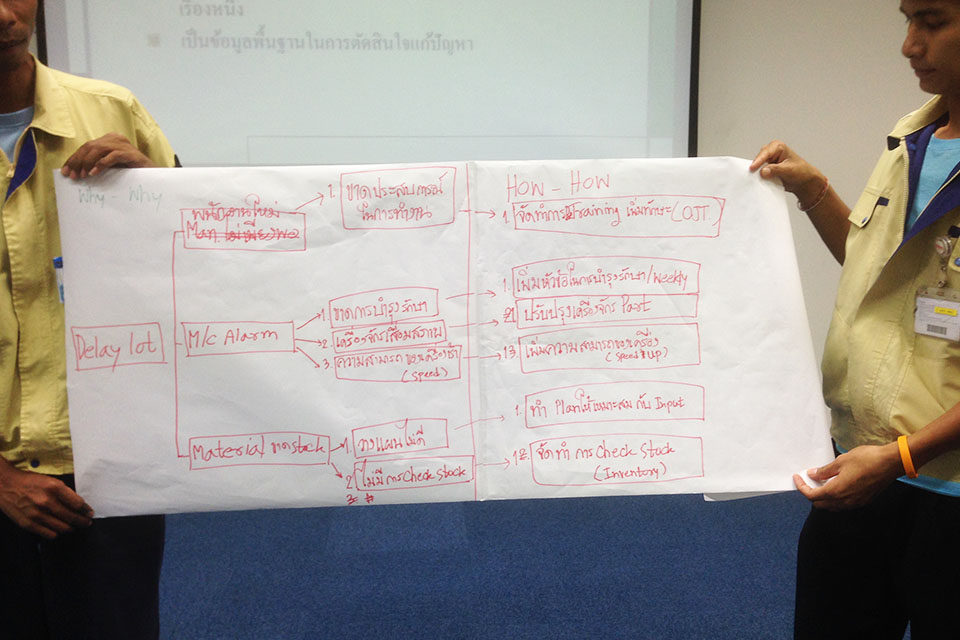 เรื่องหนึ่ง
เป็นข้อมูลพื้นฐานในการตัดสินใจแก้ปัญหา
Why - Why
Delay lot
พนักงานใหม่
Man ไม่เพียงพอ
1. ขาดประสบการณ์
ในการทำงาน
M/c Alarm
1. ขาดการบำรุงรักษา
2. เครื่องจักรเสื่อมสภาพ
3. ความสามารถของเครื่องช้า
(speed)
Material ขาด stock
1. วางแผนไม่ดี
2 ไม่มีการ Check Stock
3 #
HOW - HOW
1. จัดทำการ Training เพิ่มทักษะ (OJT)
1. เพิ่มหัวข้อในการบำรุงรักษา/weekly
2. ปรับปรุงเครื่องจักร Part
3. เพิ่มความสามารถของเครื่อง
(speed up)
1. ทำ Plan ให้เหมาะสม กับ Input
2. จัดทำ การ Check Stock
(Inventory)